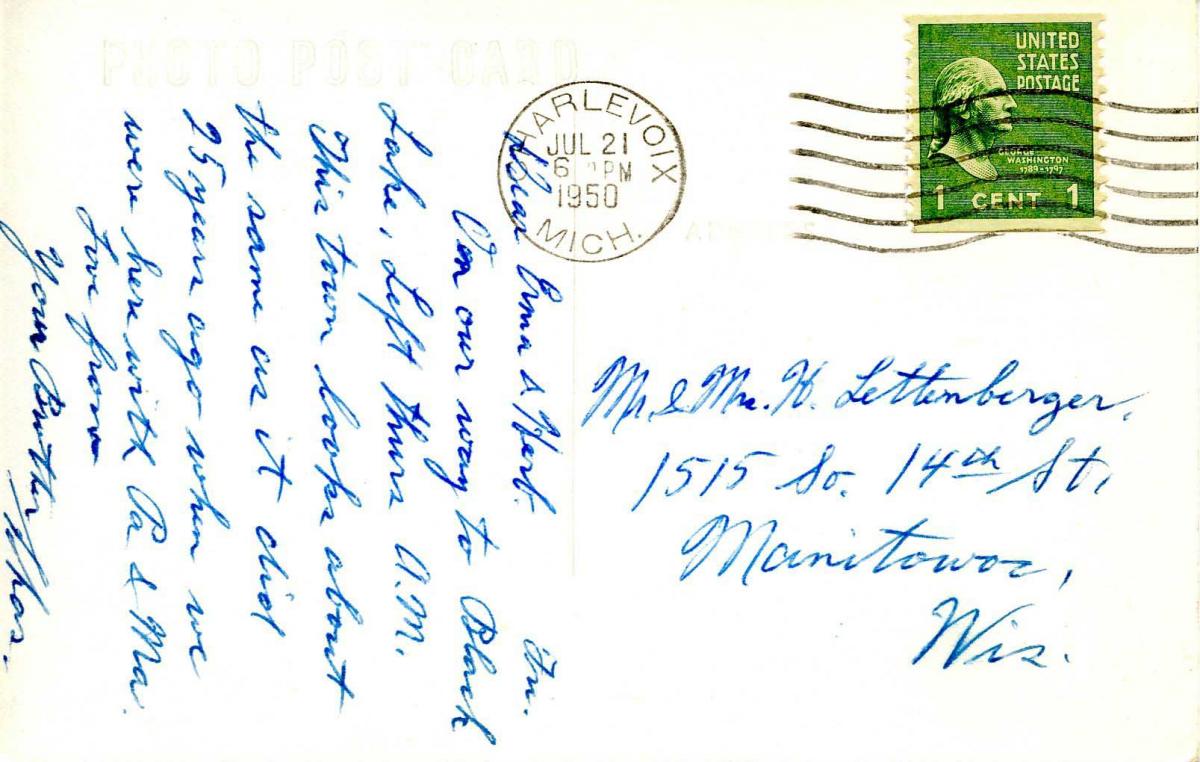 PHOTO POST CARD
CHARLEVOIX
JUL 21
6 PM
1950
MICH.
UNITED
STATES
POSTAGE
GEORGE
WASHINGTON
1789-1797
1 CENT 1
ADDRESS
Fri.
Dear Erma & Herb.
On our way to Black
Lake, Left Thurs A.M.
This town looks about
the same as it did
25 years ago when we
were here with Pa & Ma.
Love from
Your Brother Chas.
Mr. & Mrs. H. Lettenberger,
1515 So. 14th St,
Manitowoc,
Wis.